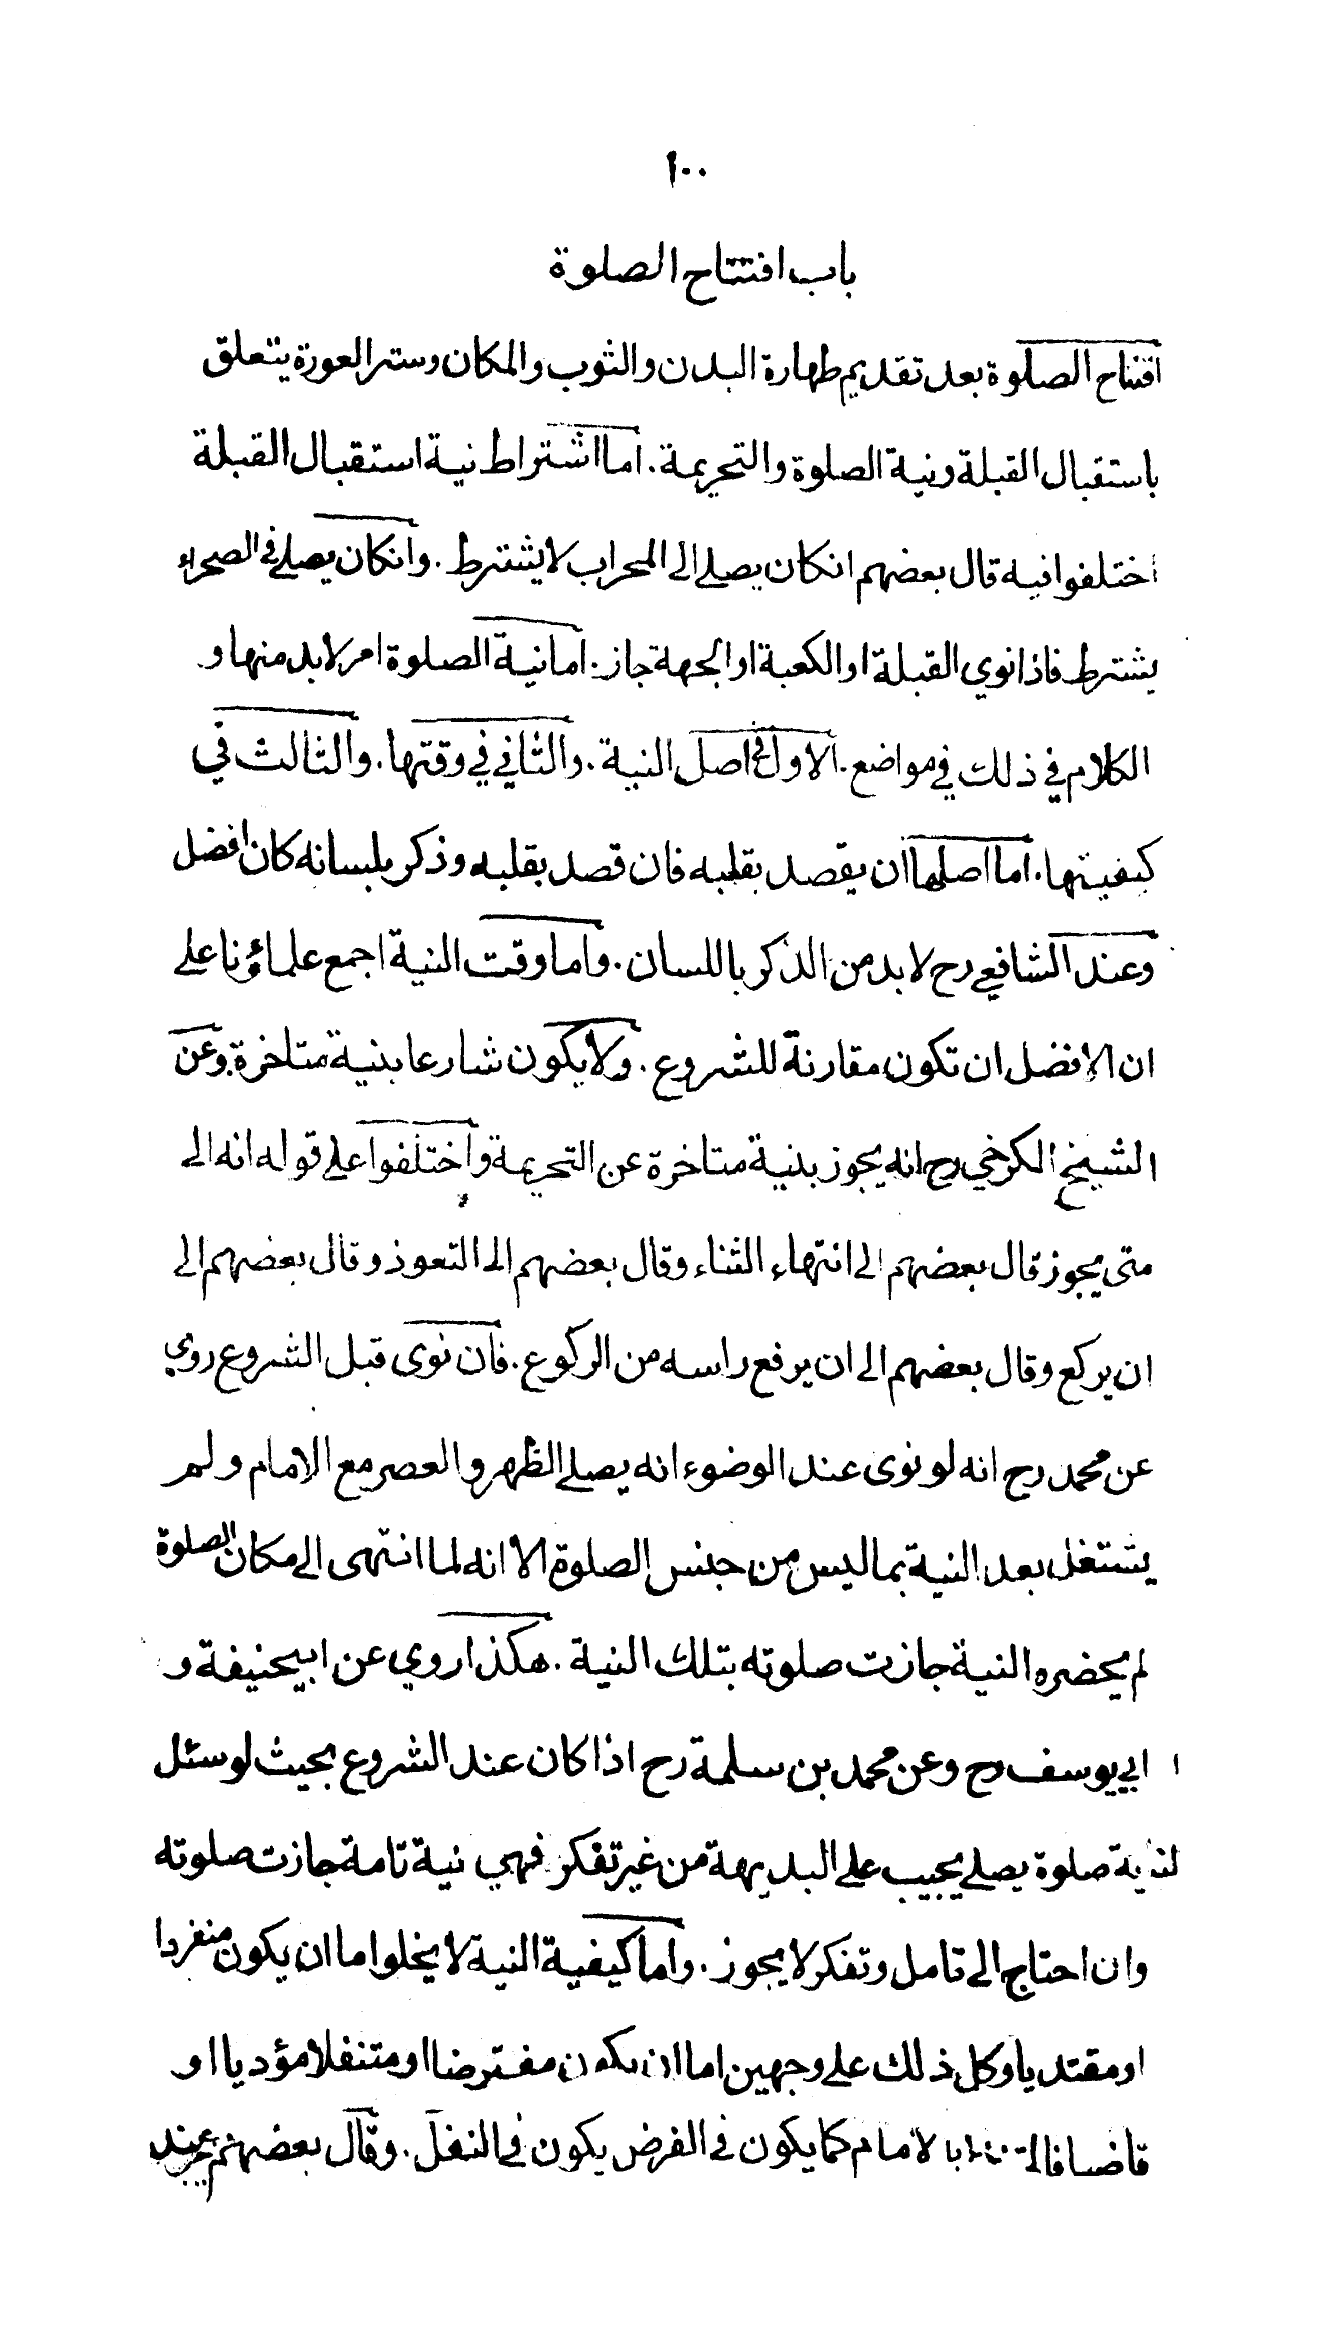 ١٠٠
باب افتتاح الصلوة
افتتاح الصلوة بعد تقديم طهارة البدن والثوب والمكان وستر العورة يتعلق
باستقبال القبلة ونية الصلوة والتحريمة. اما اشتراط نية استقبال القبلة
اختلفوا فيه قال بعضهم انكان يصلے الى المحراب لا يشترط. وانكان يصلے في الصحراء
يشترط فاذا نوي القبلة او الكعبة او الجهة جاز. اما نية الصلوة امر لابد منها و
الكلام في ذلك في مواضع. الاول في اصل النية. والثاني في وقتها. والثالث في
كيفيتها. اما اصلها ان يقصد بقلبه فان قصد بقلبه وذكر بلسانه كان افضل
وعند الشافعي رح لابد من الذكر باللسان. واما وقت النية اجمع علماؤنا على
ان الافضل ان تكون مقارنة للشروع. ولا يكون شارعا بنية متاخرة وعن
الشيخ الكرخي رح انه يجوز بنية متاخرة عن التحريمة واختلفوا على قوله انه الى
متى يجوز قال بعضهم الى انتهاء الثناء وقال بعضهم الى التعوذ وقال بعضهم الى
ان يركع وقال بعضهم الى ان يرفع راسه من الركوع. فان نوى قبل الشروع روي
عن محمد رح انه لو نوى عند الوضوء انه يصلے الظهر والعصر مع الامام ولم
يشتغل بعد النية بما ليس من جنس الصلوة الا انه لما انتهى الى مكان الصلوة
لم يحضره النية جازت صلوته بتلك النية. هكذا روي عن ابيحنيفة و
ابي يوسف رح وعن محمد بن سلمة رح اذا كان عند الشروع بحيث لو سئل
صلوة يصلے يجيب على البديهة من غير تفكر فهي نية تامة جازت صلوته
وان احتاج الى تامل وتفكر لا يجوز. واما كيفية النية لا يخلوا ما ان يكون منفردا
او مقتديا وكل ذلك على وجهين اما ان يكون مفترضا او متنفلا مؤديا او
قاضيا بالامام كما يكون في الفرض يكون في النفل. وقال بعضهم عند